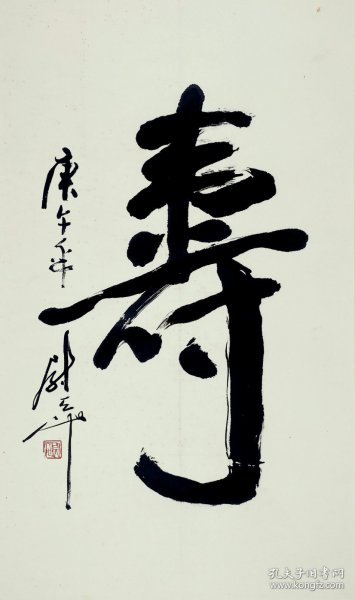 寿
庚午年
孔夫子旧书网
www.kongfz.com